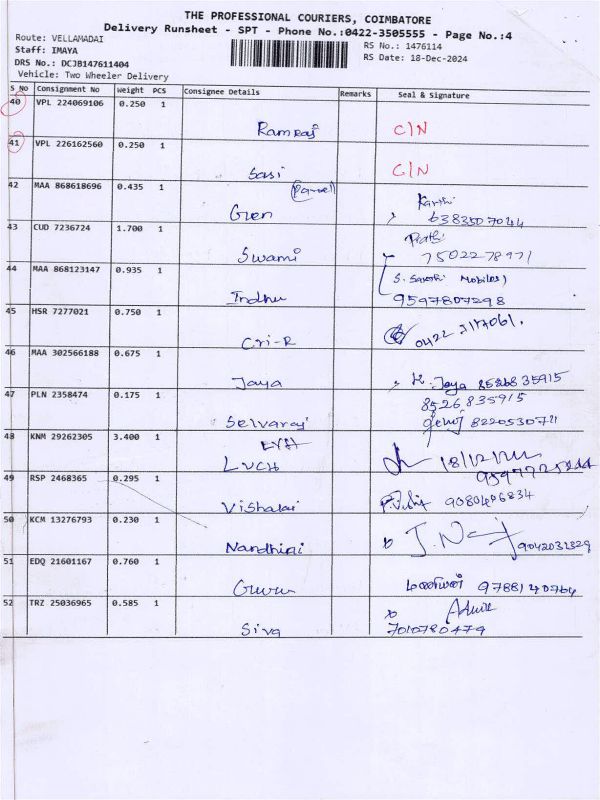 THE PROFESSIONAL COURIERS, COIMBATORE
Delivery Runsheet - SPT - Phone No.:0422-3505555 - Page No.:4
Route: VELLAMADAI
RS No.: 1476114
Staff: IMAYA
RS Date: 18-Dec-2024
DRS No.: DCJB147611404
Vehicle: Two Wheeler Delivery
S No Consignment No Weight PCS Consignee Details Remarks Seal & Signature
40 VPL 224069106 0.250 1
Ramraj C/N
41 VPL 226162560 0.250 1
Sasi C/N
42 MAA 868618696 0.435 1 (Parcel)
Gren Karthi
6383507044
43 CUD 7236724 1.700 1
Swami 7502278971
44 MAA 868123147 0.935 1 Mobiles)
Indhu 9597807298
45 HSR 7277021 0.750 1
Cri-R 0422
46 MAA 302566188 0.675 1
Jaya Jaya 8526835915
47 PLN 2358474 0.175 1 8526835915
Selvaraj 8220530711
48 KNM 29262305 3.400 1
LVCH 18/12
49 RSP 2468365 0.295 1
Vishalai 9080406834
50 KCM 13276793 0.230 1
Nandhini 9042032329
51 EDQ 21601167 0.760 1
Guru 9788140764
52 TRZ 25036965 0.585 1
Siva 7010780479